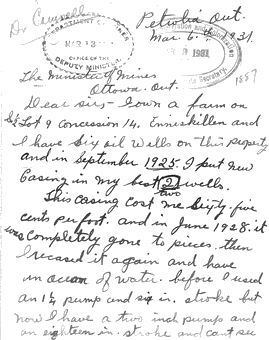 Dr Camsell
Petrolia Ont.
Mar 6. th 1931.
DEPARTMENT OF MINES
MAR 13
OFFICE OF THE
DEPUTY MINISTER
1931
Secretary.
1557
The Minister of Mines
Ottowa. Ont.
Dear sir- I own a farm on
Lot 9 Concession 14. Enniskillen and
I have six oil wells on this property
and in September 1925. I put new
Casing in my best 2 wells.
two
This casing cost me Sixty-five
cents per foot. and in June 1928. it
was completely gone to pieces. then
I recased it again and have
an ocean of water. before I used
an 1½ pump and six in. stroke but
now I have a two inch pump and
an eighteen in. stroke and cant see